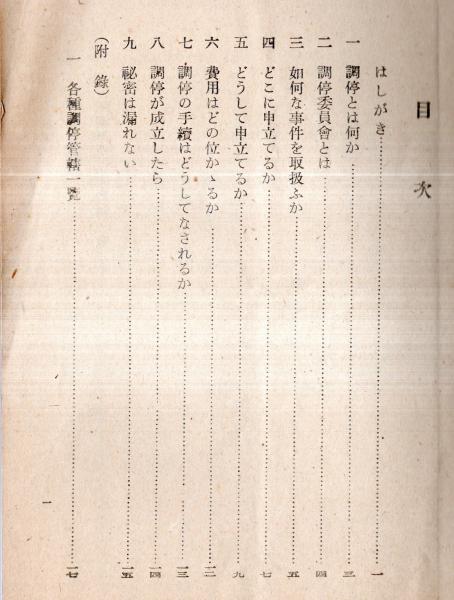 目次
はしがき……一
一 調停とは何か……三
二 調停委員會とは……四
三 如何な事件を取扱ふか……五
四 どこに申立てるか……七
五 どうして申立てるか……九
六 費用はどの位かゝるか……一二
七 調停の手續はどうしてなされるか……一三
八 調停が成立したら……一四
九 祕密は漏れない……一五
（附錄）
一 各種調停管轄一覽……一七
一